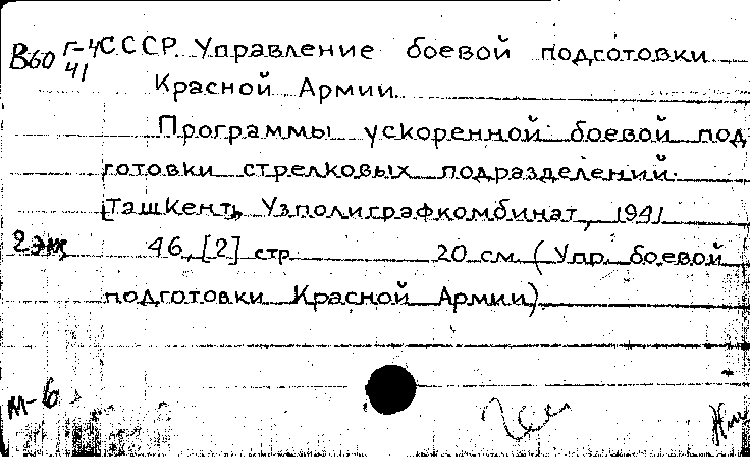 В60 Г-4 СССР. Управление боевой подготовки
41 Красной Армии.
Программы ускоренной боевой под
готовки стрелковых подразделений.
[Ташкент], Узполиграфкомбинат, 1941
2 экз 46, [2] стр. 20 см. (Упр. боевой
подготовки Красной Армии)
М-6